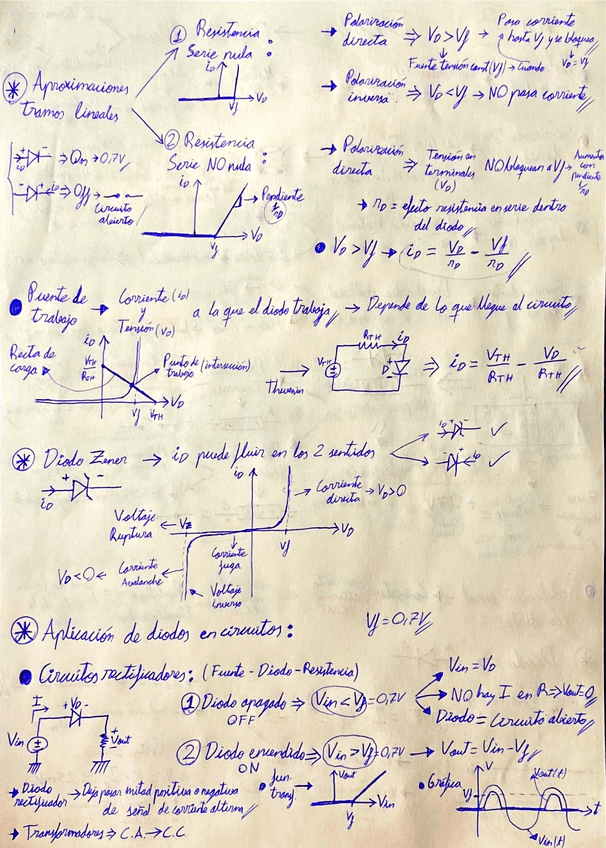 * Aproximaciones
tramos lineales
① Resistencia
Serie nula:
iD
Vf
VD
→ Polarización directa ⇒ VD > Vf → Pasa corriente hasta Vf y se bloquea
VD = Vf
Fuente tensión const (Vf) → cuando
→ Polarización inversa ⇒ VD < Vf → NO pasa corriente
② Resistencia
Serie NO nula:
iD
Pendiente
1/rD
Vf
VD
→ Polarización directa ⇒ Tensión en terminales (VD) NO bloquean a Vf → Aumenta con pendiente 1/rD
→ rD = efecto resistencia en serie dentro
del diodo
● VD > Vf → iD = VD/rD - Vf/rD
iD + - ⇒ On → 0,7V
- + iD ⇒ Off →
Circuito
abierto
● Puente de trabajo → Corriente (iD) y Tensión (VD) a la que el diodo trabaja → Depende de lo que llegue al circuito
Recta de
carga
iD
VTH/RTH
Punto de (intersección)
trabajo
Vf VTH VD
Thévenin →
VTH
RTH
iD
D
⇒ iD = VTH/RTH - VD/RTH
* Diodo Zener → iD puede fluir en los 2 sentidos
iD + - ✓
- + iD ✓
+ -
iD
iD
Corriente
directa → VD > 0
Voltaje
Ruptura
← VZ
Vf
VD
VD < 0 ← Corriente
Avalancha
Corriente
fuga
Voltaje
inverso
* Aplicación de diodos en circuitos:
Vf = 0,7V
● Circuitos rectificadores: (Fuente - Diodo - Resistencia)
① Diodo apagado ⇒ Vin < Vf = 0,7V
OFF
Vin = VD
NO hay I en R ⇒ Vout = 0
Diodo = Circuito abierto
② Diodo encendido ⇒ Vin > Vf = 0,7V → Vout = Vin - Vf
ON
I
+ VD -
Vin
+ Vout
-
→ Diodo
rectificador → Deja pasar mitad positiva o negativa
de señal de corriente alterna
→ Transformadores ⇒ C.A. → C.C.
● fun.
transf. →
Vout
Vf
Vin
● Gráfica
V
Vf
Vout(t)
t
Vin(t)